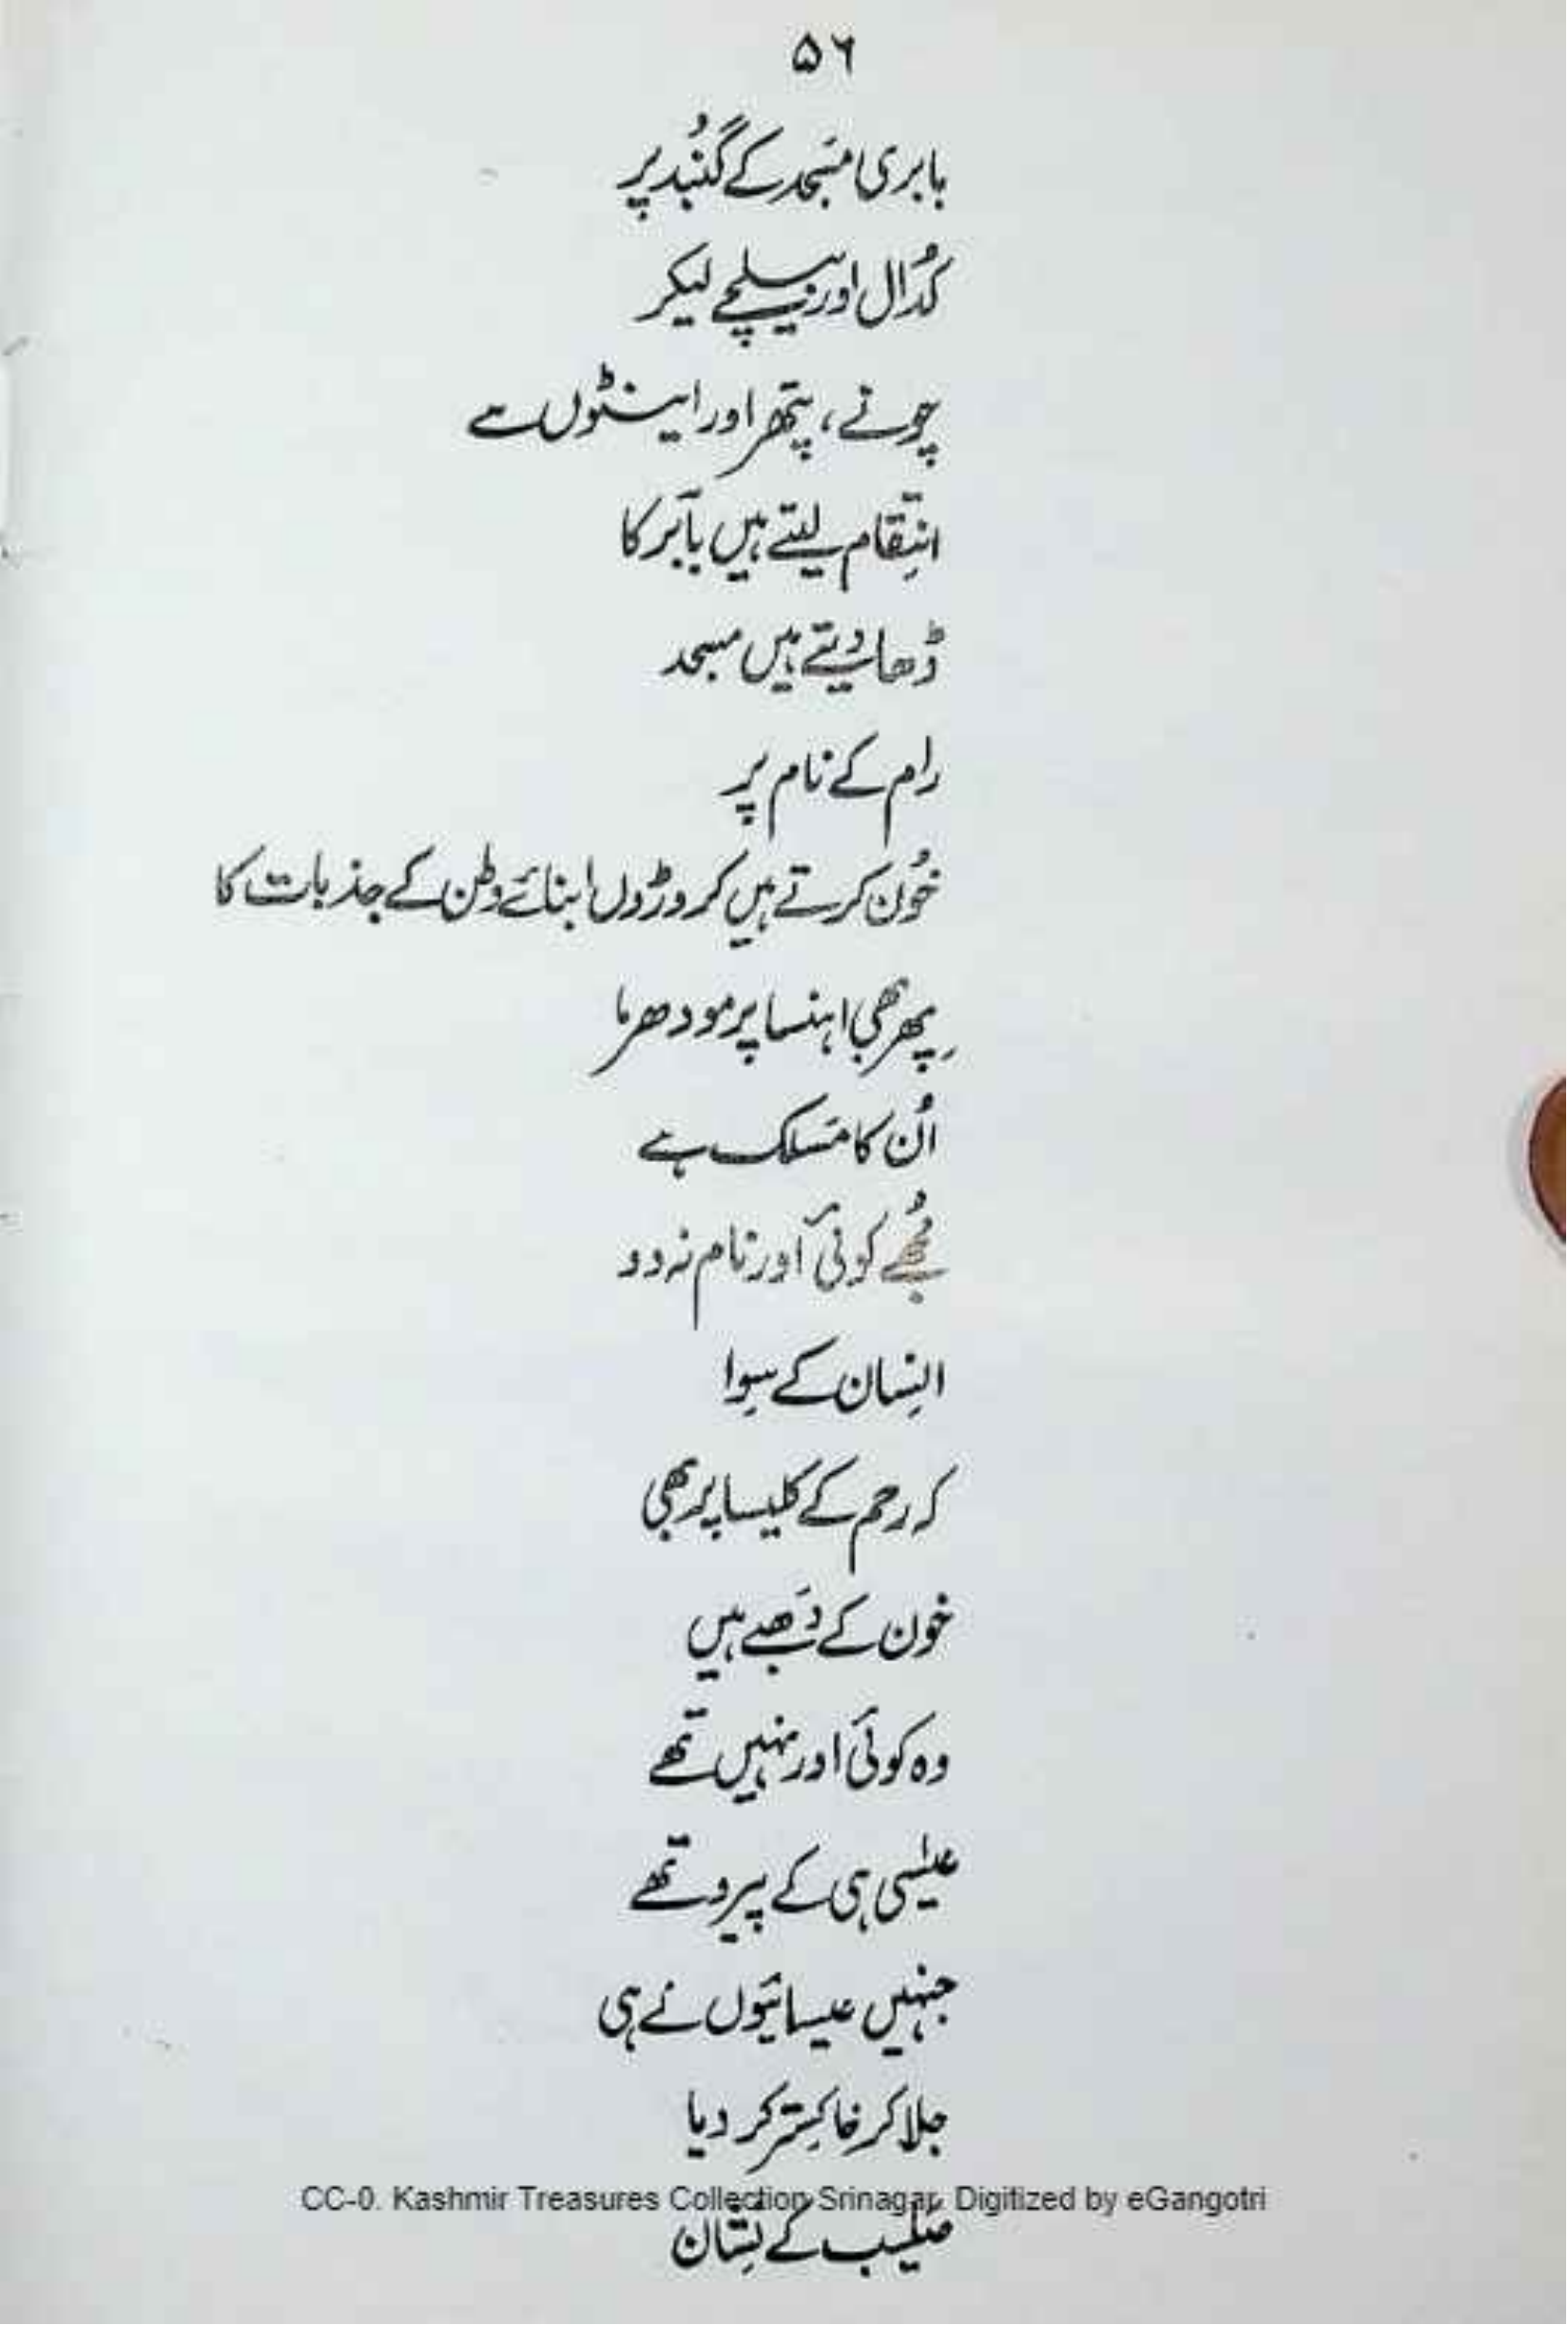 ۵۶
بابری مَسجد کے گُنبد پر
کُدال اور بیلچے لیکر
چونے، پتھر اور اینٹوں سے
انتِقام لیتے ہیں بابر کا
ڈھا دیتے ہیں مسجد
رام کے نام پر
خُون کرتے ہیں کروڑوں ابنائے وطن کے جذبات کا
پِھر بھی اہنسا پرمو دھرما
اُن کا مَسلک ہے
مُجھے کوئی اور نام نہ دو
انسِان کے سِوا
کہ رحم کے کلیسا پر بھی
خون کے دَھبے ہیں
وہ کوئی اور نہیں تھے
عیسٰی ہی کے پیرو تھے
جنہیں عیسائیوں نے ہی
جلا کر خاکِستر کر دیا
CC-0. Kashmir Treasures Collection Srinagar. Digitized by eGangotri
صَلیب کے نِشان